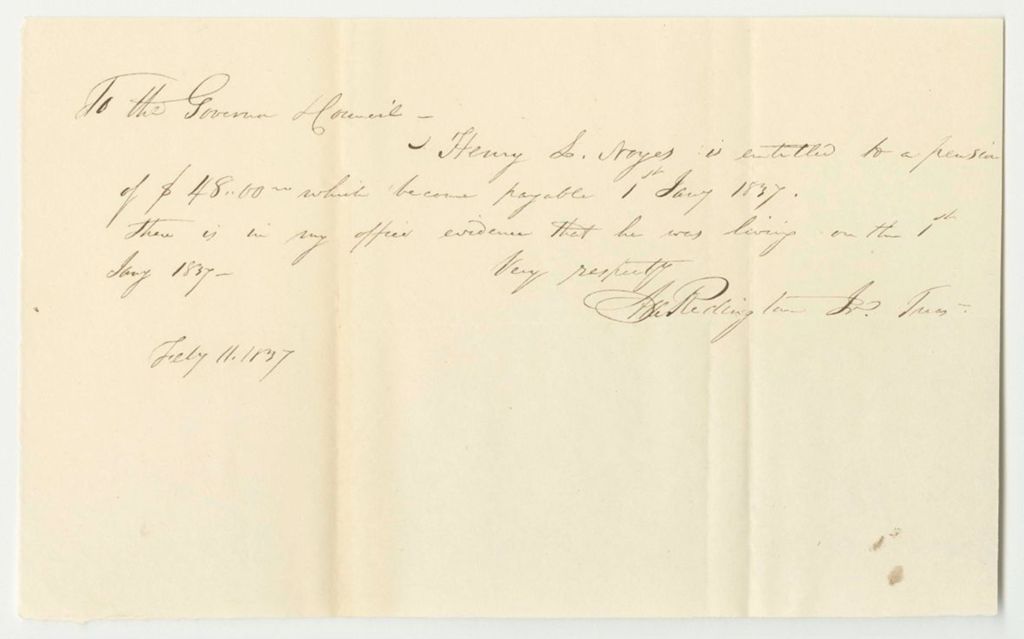 To the Governor & Council –
Henry L. Noyes is entitled to a pension
of $48..00 which became payable 1st Jany 1837.
There is in my office evidence that he was living on the 1st
Jany 1837 –
Very respectfy
Asa Redington Jr. Treas.
Feby 11. 1837